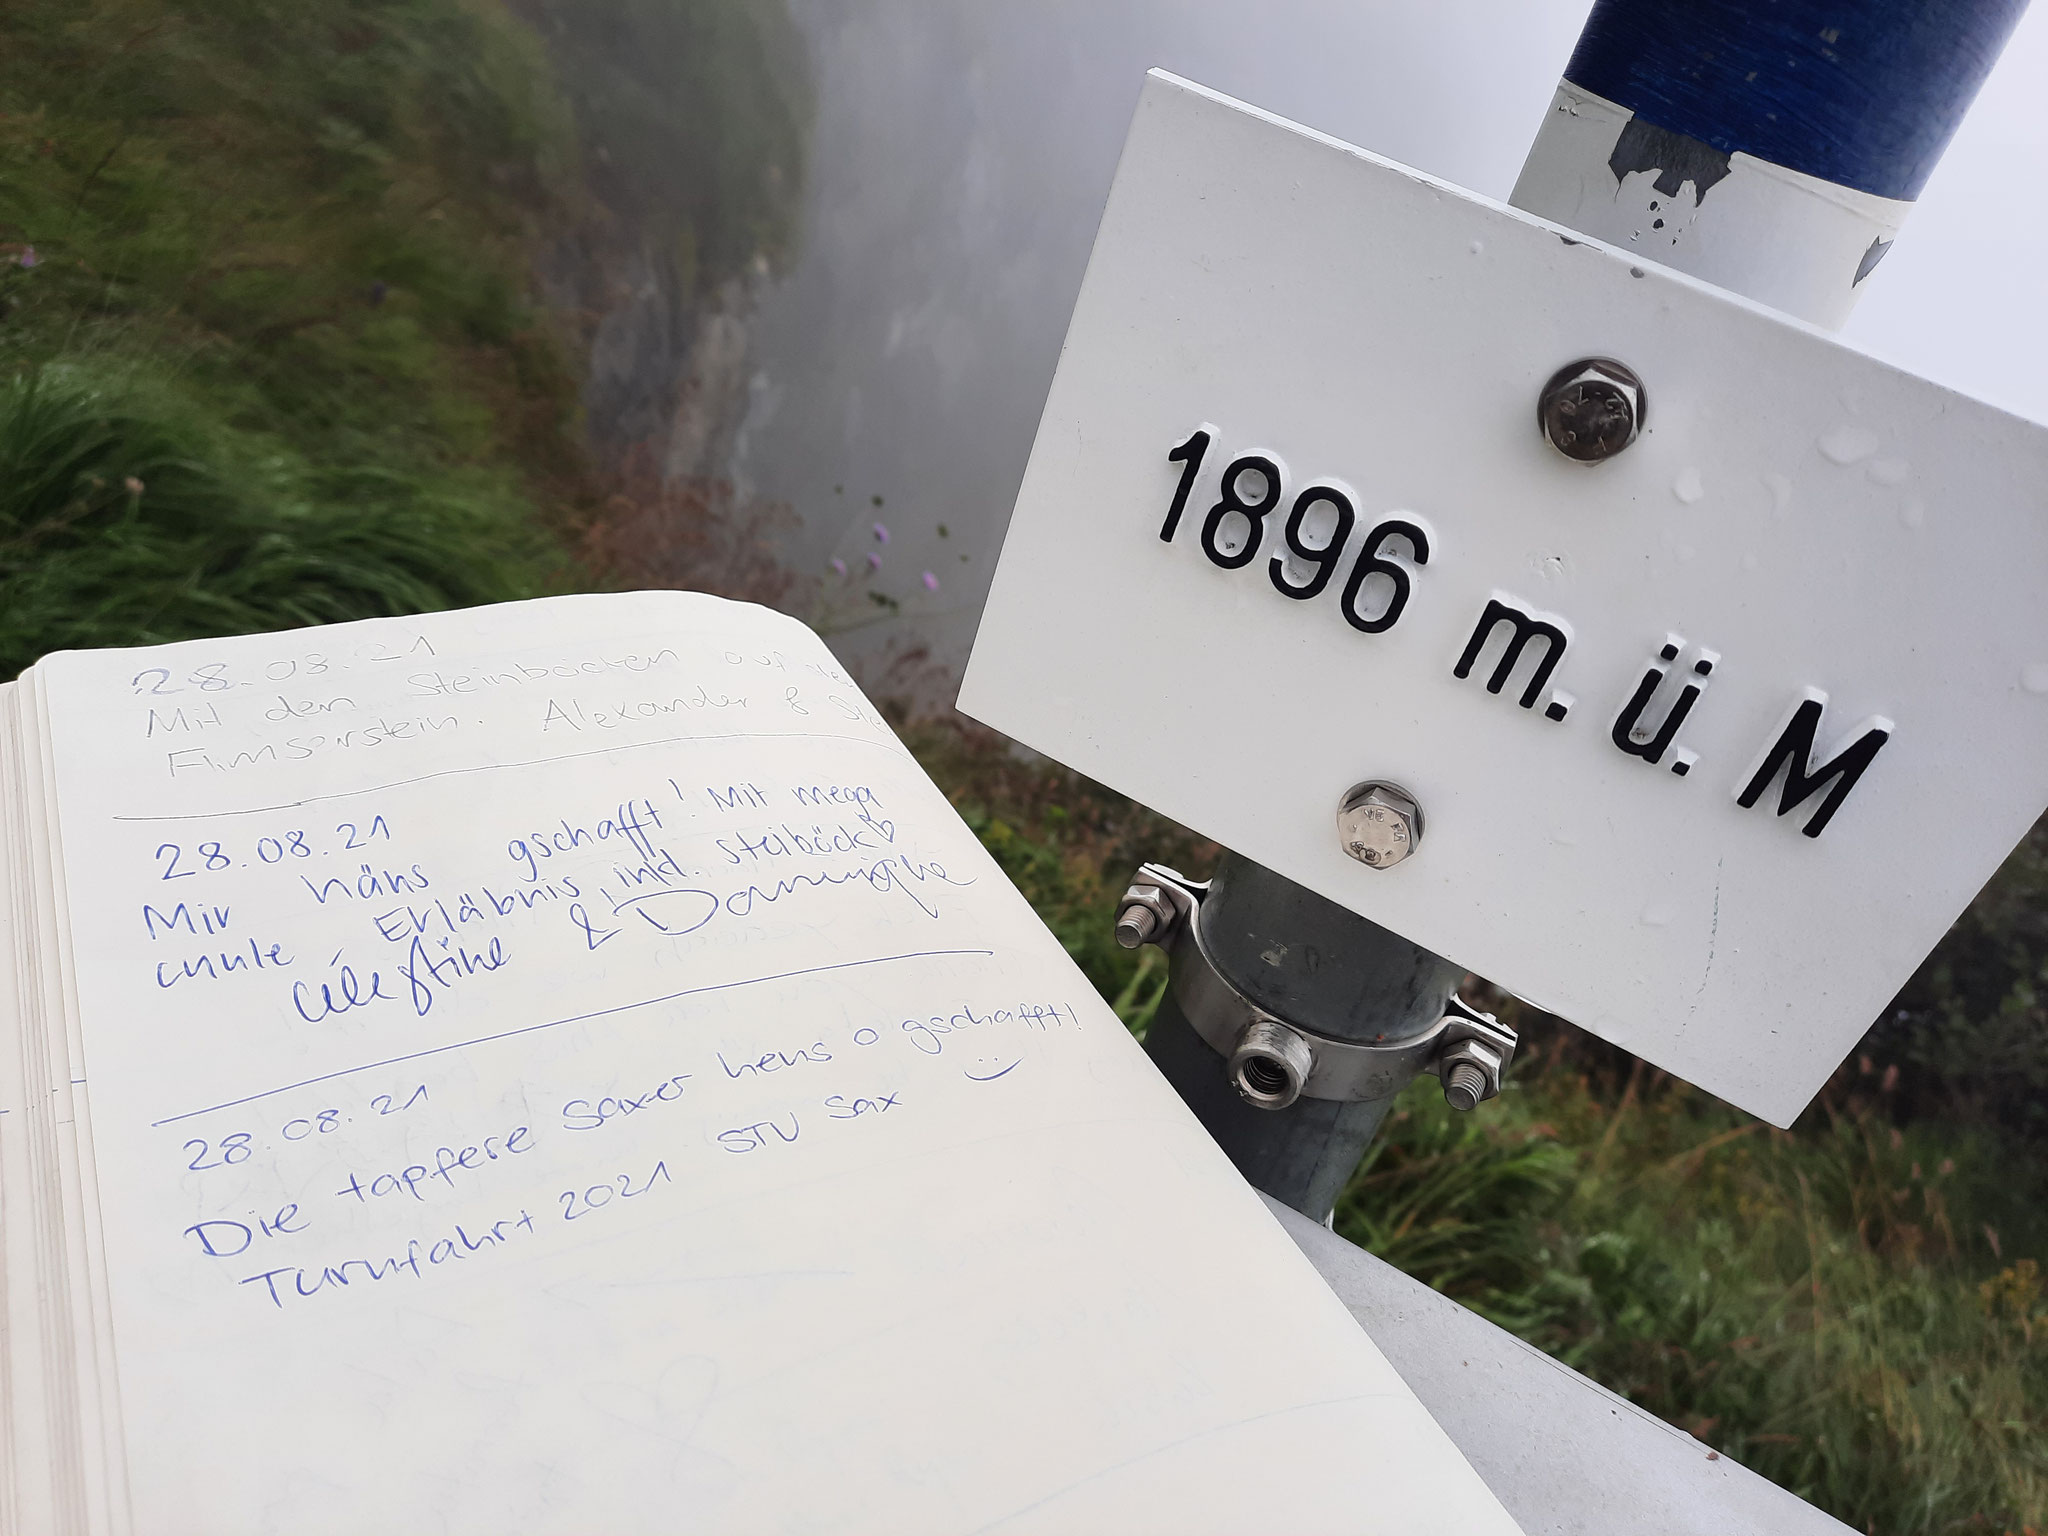 28.08.21
Mit den Steinböcken auf
Flimserstein. Alexander &
28.08.21
Mir häns gschafft! Mit mega
cuule Erläbnis, inkl. steiböck
Célestine & Dominique
28.08.21
Die tapfere Saxer hens o gschafft!
Turnfahrt 2021 STV Sax
1896 m.ü.M